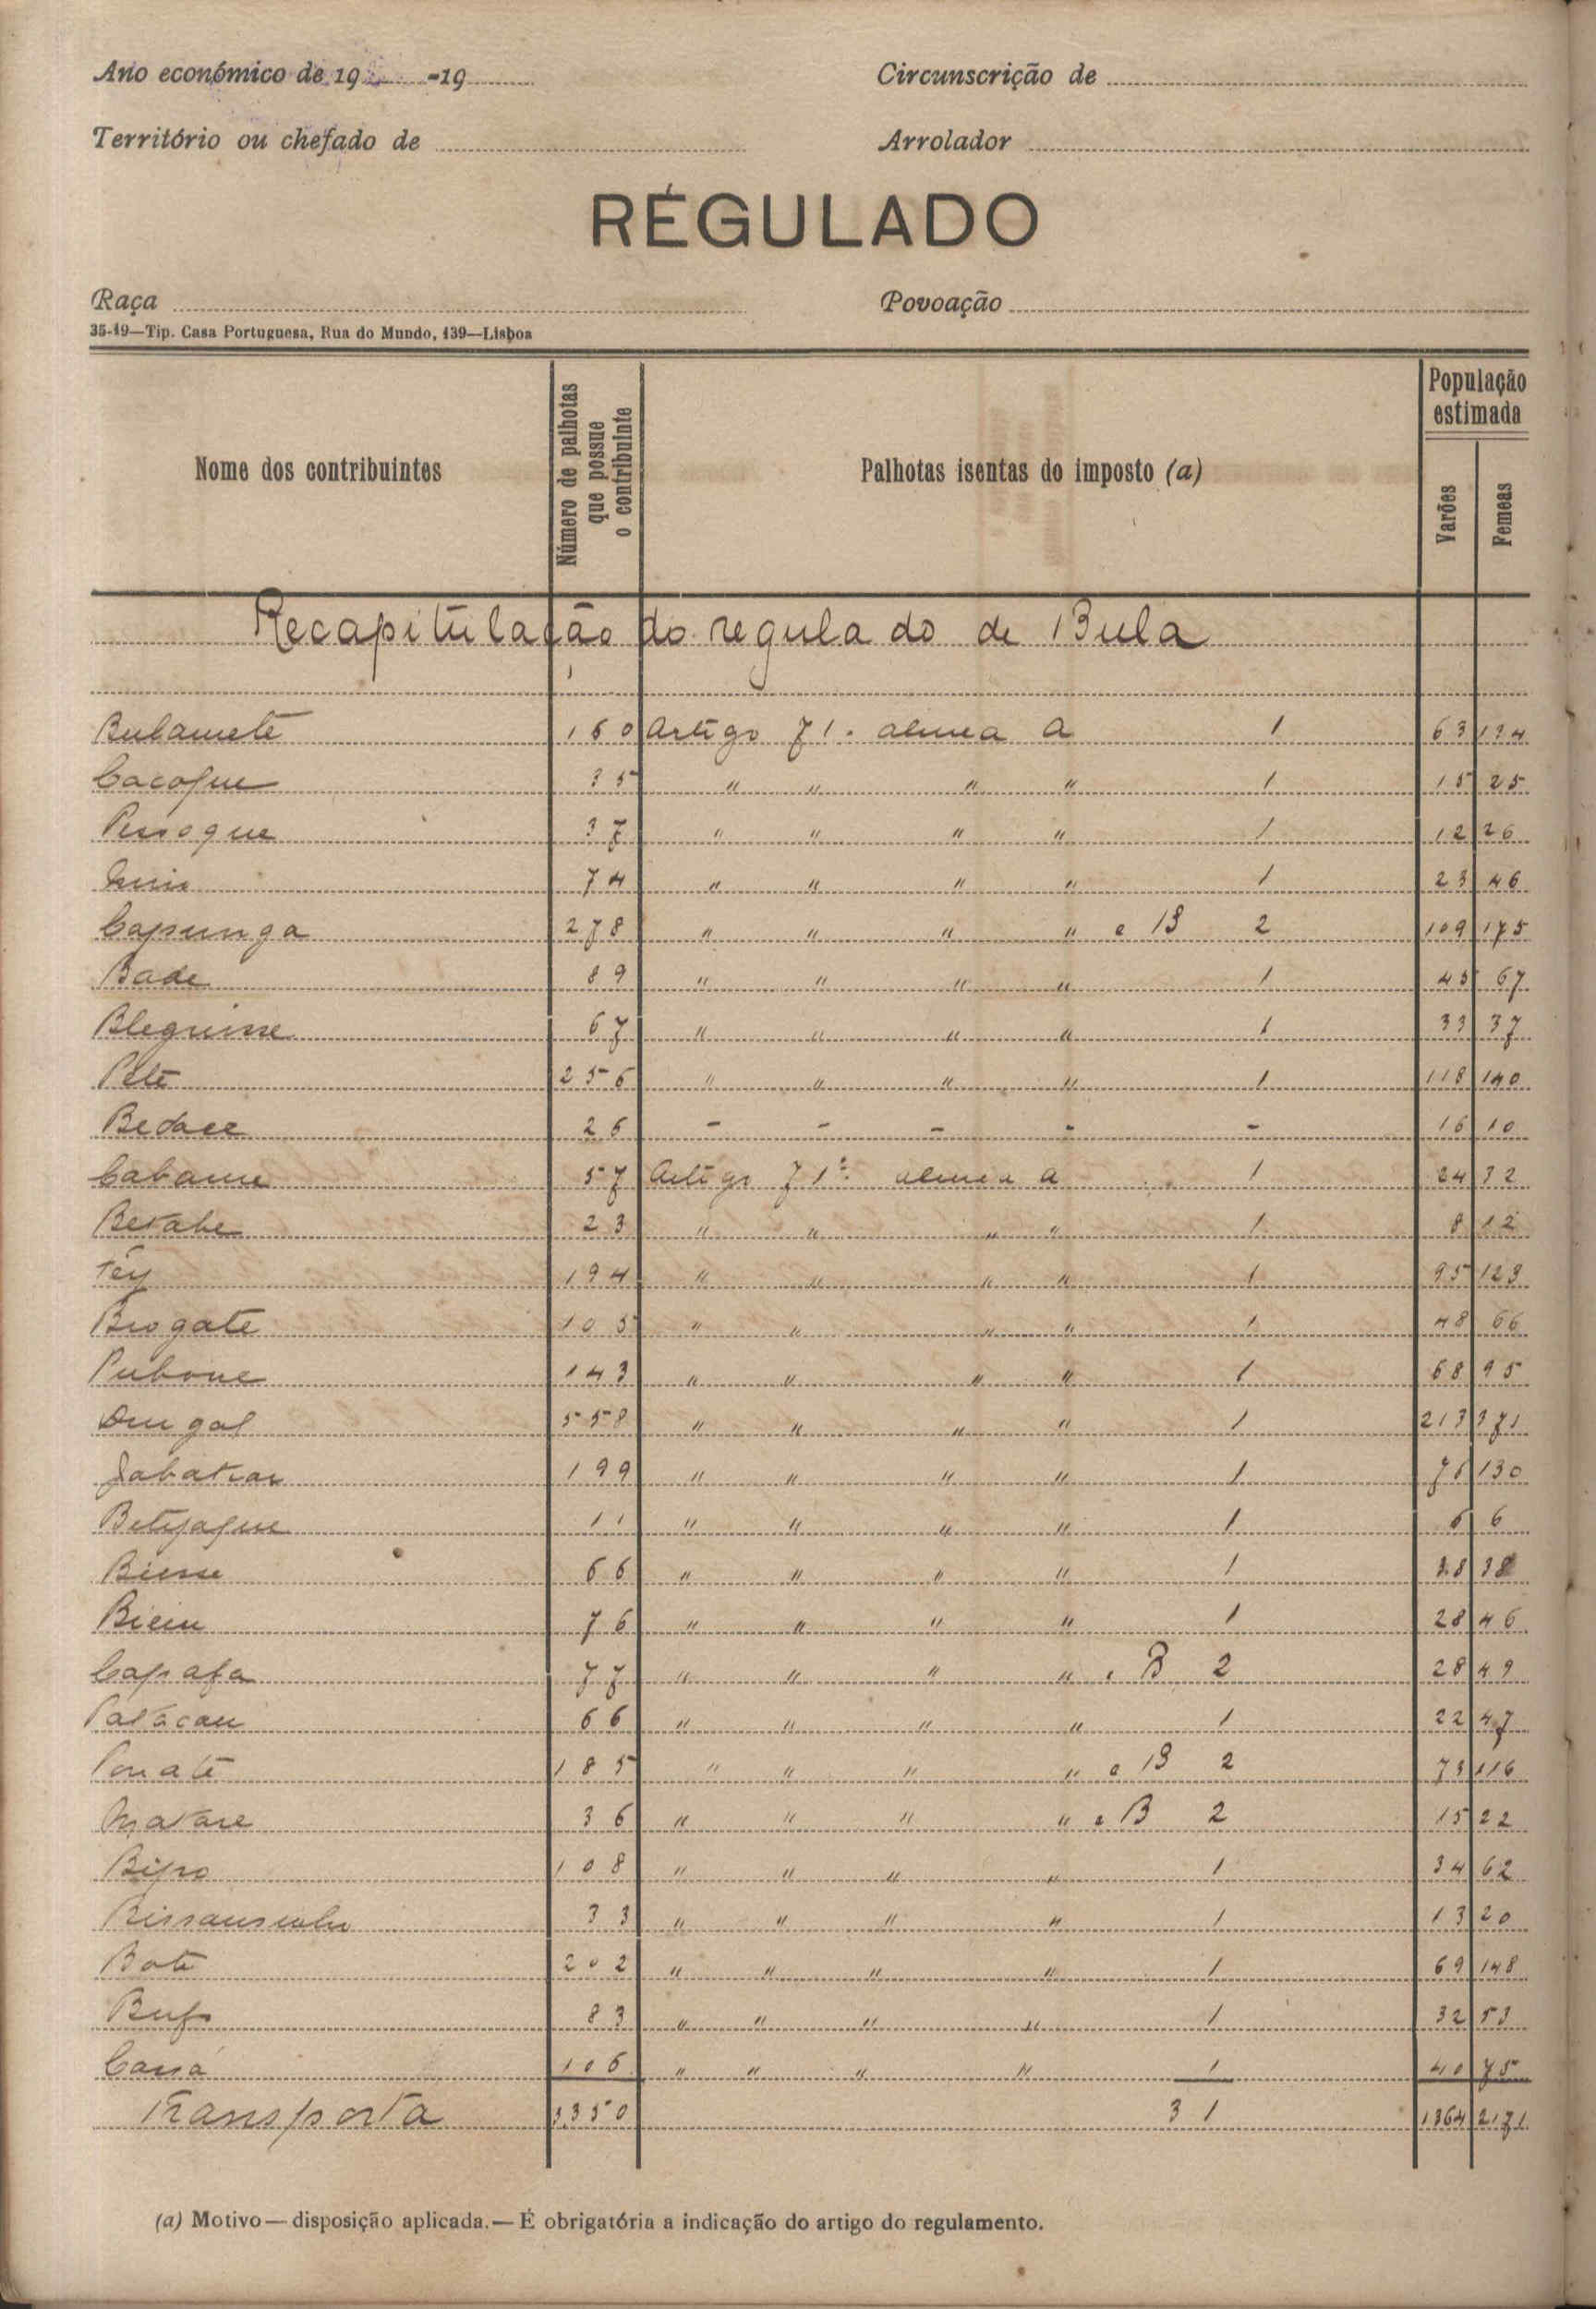 Ano económico de 19 -19
Circunscrição de
Território ou chefado de
Arrolador
RÉGULADO
Raça
Povoação
35-19—Tip. Casa Portuguesa, Rua do Mundo, 139—Lisboa
Nome dos contribuintes
Número de palhotas que possue o contribuinte
Palhotas isentas do imposto (a)
População estimada
Varões
Femeas
Recapitulação do regulado de Bula
160 Artigo 71. alinea A 1 63 134
35 " " " " 1 15 25
37 " " " " 1 12 26
74 " " " " 1 23 46
Capunga 278 " " " " e B 2 109 175
Bade 89 " " " " 1 45 67
Bleguisse 67 " " " " 1 33 37
Pete 256 " " " " 1 118 140
26 - - - - - 16 10
57 Artigo 71º alinea A 1 24 32
23 " " " " 1 8 12
194 " " " " 1 95 123
Biogate 105 " " " " 1 48 66
Pubone 143 " " " " 1 68 95
558 " " " " 1 213 371
199 " " " " 1 76 130
11 " " " " 1 6 6
66 " " " " 1 38
76 " " " " 1 28 46
Capafa 77 " " " " e B 2 28 49
66 " " " " 1 22 47
Ponate 185 " " " " e B 2 73 116
36 " " " " e B 2 15 22
Bipo 108 " " " " 1 34 62
33 " " " " 1 13 20
Bote 202 " " " " 1 69 148
83 " " " " 1 32 53
106 " " " " 1 40 75
Transporta 3.350 31 1364 2171
(a) Motivo—disposição aplicada.—É obrigatória a indicação do artigo do regulamento.